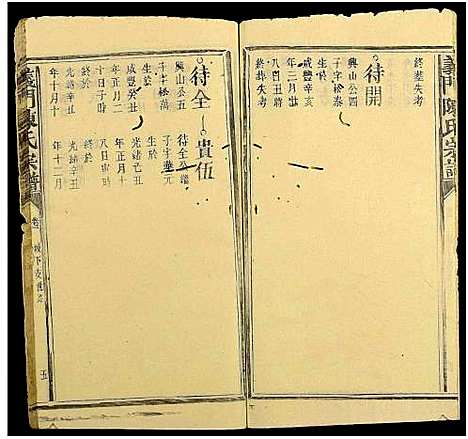 義門陳氏宗譜
終墓失考
待開
興山公四
子字松泰
生於
咸豐辛亥
年三月廿
八日丑時
終葬失考
待全
興山公五
子字松萬
生於
咸豐癸丑
年正月二
十日子時
終於
光緒辛丑
年十月十
貴伍
待全公繼
子字華元
生於
光緒己丑
年正月十
八日寅時
終於
光緒辛丑
年十二月
義門陳氏宗譜
卷
五